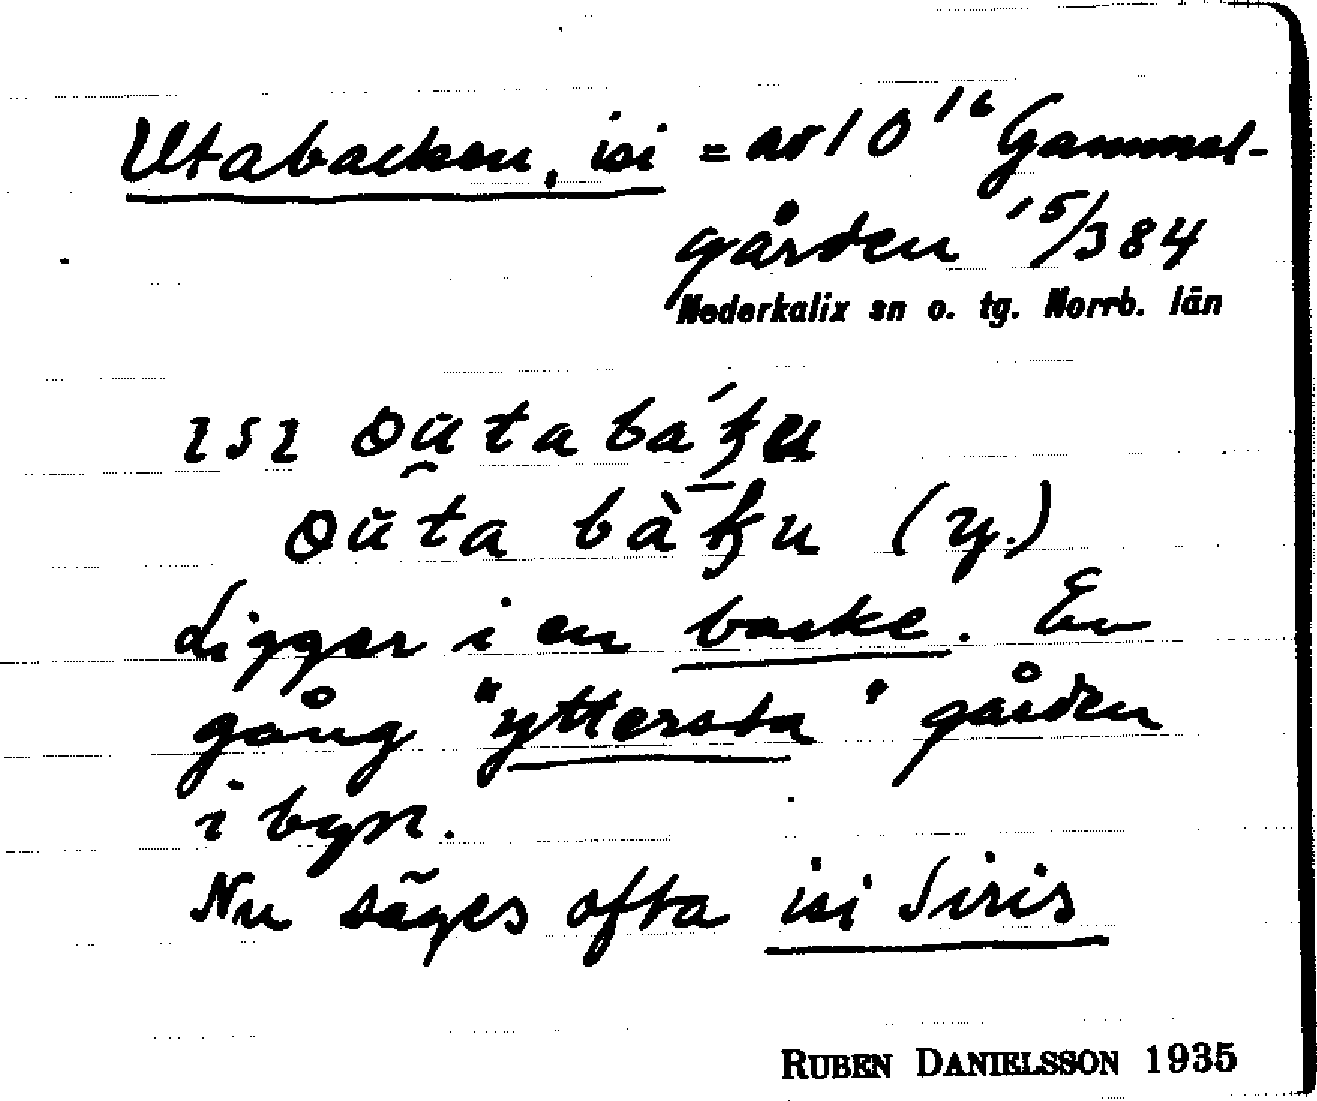 Utabacken, isi = av 10¹⁶ Gammel-
gården ¹⁵/384
Nederkalix sn o. tg. Norrb. län
ısı outabaʹku
outa bàku (y.)
Ligger i en backe. En
gång "yttersta" gården
i byn.
Nu säges ofta isi Siris
RUBEN DANIELSSON 1935